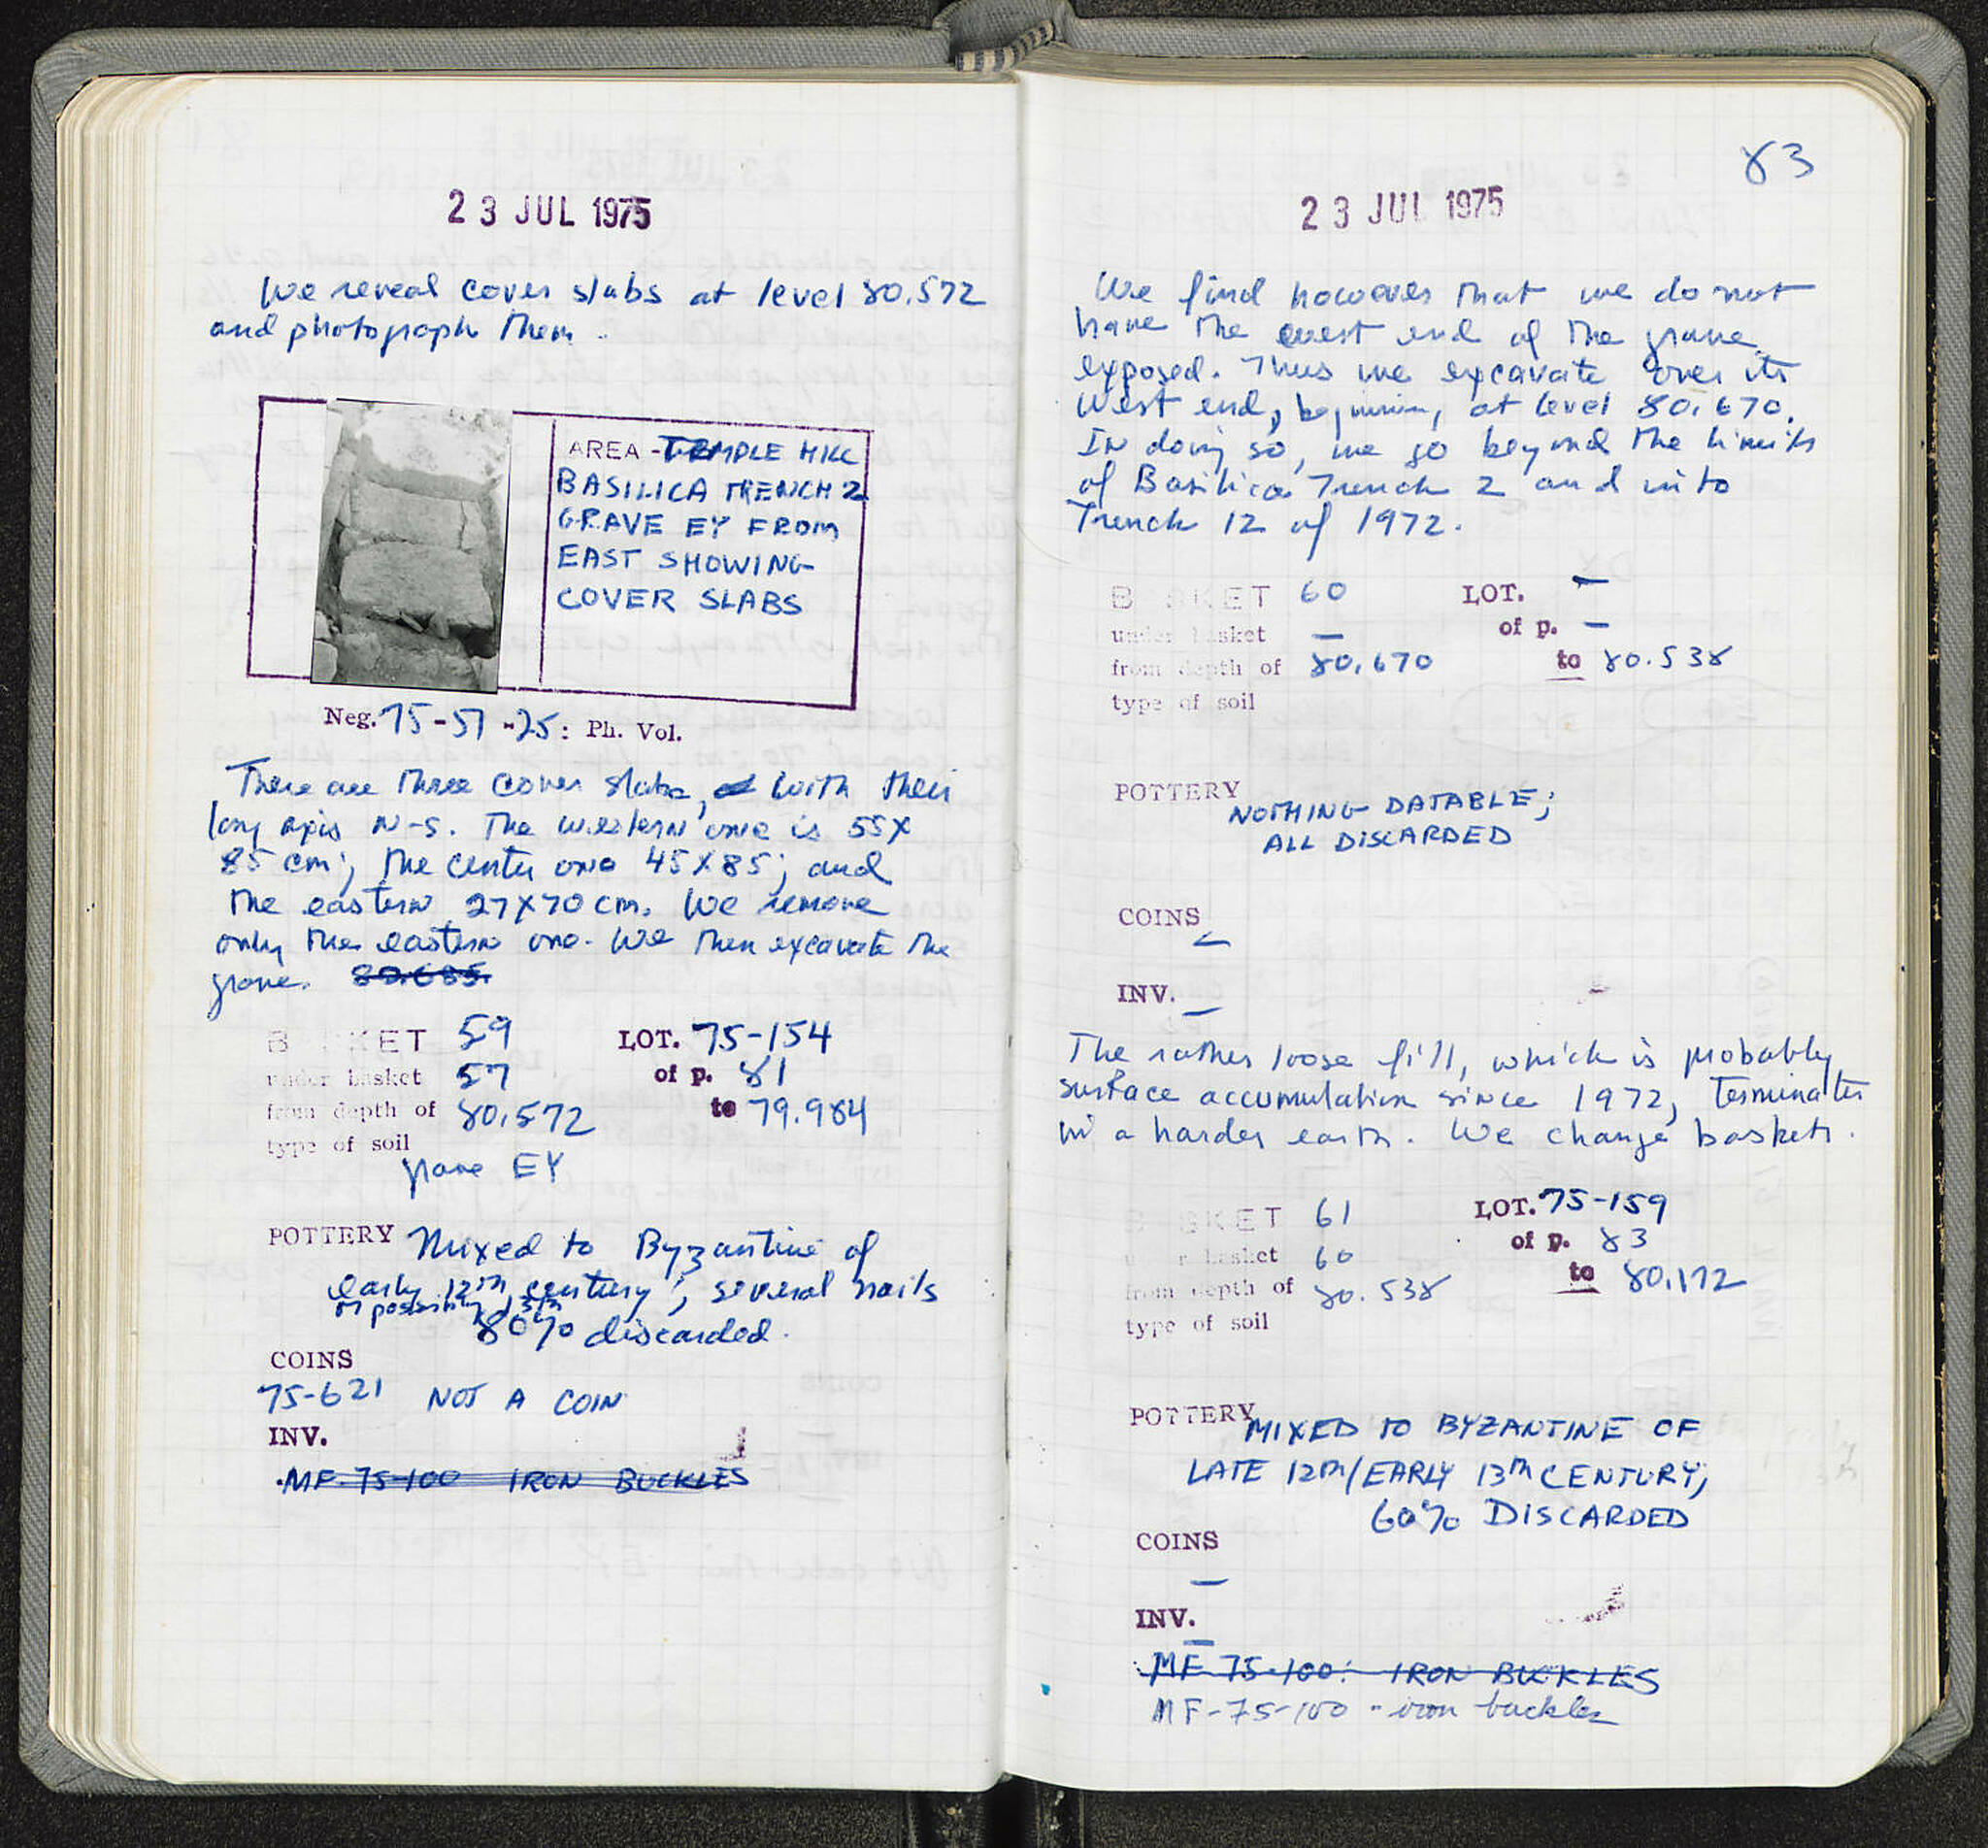 23 JUL 1975
We reveal cover slabs at level 80.572
and photograph them.
AREA - TEMPLE HILL
BASILICA TRENCH 2
GRAVE EY FROM
EAST SHOWING
COVER SLABS
Neg. 75-57-25: Ph. Vol.
There are three cover slabs, with their
long axis N-S. The western one is 55X
85 cm; the center one 45X85; and
the eastern 27X70 cm. We remove
only the eastern one. We then excavate the
grave. 80.685.
BASKET 59 LOT. 75-154
under basket 57 of p. 81
from depth of 80.572 to 79.984
type of soil
grave EY
POTTERY Mixed to Byzantine of
early 12th century; several nails
or possibly 13th
80% discarded.
COINS
75-621 NOT A COIN
INV.
MF-75-100 IRON BUCKLES
83
23 JUL 1975
We find however that we do not
have the west end of the grave
exposed. Thus we excavate over its
West end, beginning at level 80.670.
In doing so, we go beyond the limits
of Basilica Trench 2 and into
Trench 12 of 1972.
BASKET 60 LOT. —
under basket — of p. —
from depth of 80.670 to 80.538
type of soil
POTTERY NOTHING DATABLE;
ALL DISCARDED
COINS
—
INV.
—
The rather loose fill, which is probably
surface accumulation since 1972, terminates
in a harder earth. We change baskets.
BASKET 61 LOT. 75-159
under basket 60 of p. 83
from depth of 80.538 to 80.172
type of soil
POTTERY MIXED TO BYZANTINE OF
LATE 12th/EARLY 13th CENTURY;
60% DISCARDED
COINS
—
INV.
—
MF 75-100: IRON BUCKLES
MF-75-100 - iron buckles